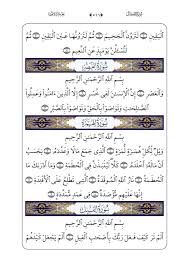 ٱلْيَقِينِ ۝ لَتَرَوُنَّ ٱلْجَحِيمَ ۝ ثُمَّ لَتَرَوُنَّهَا عَيْنَ ٱلْيَقِينِ ۝ ثُمَّ
لَتُسْـَٔلُنَّ يَوْمَئِذٍ عَنِ ٱلنَّعِيمِ ۝
سُورَةُ العَصْرِ
بِسْمِ ٱللَّهِ ٱلرَّحْمَٰنِ ٱلرَّحِيمِ
وَٱلْعَصْرِ ۝ إِنَّ ٱلْإِنسَٰنَ لَفِى خُسْرٍ ۝ إِلَّا ٱلَّذِينَ ءَامَنُوا۟ وَعَمِلُوا۟
ٱلصَّٰلِحَٰتِ وَتَوَاصَوْا۟ بِٱلْحَقِّ وَتَوَاصَوْا۟ بِٱلصَّبْرِ ۝
سُورَةُ الهُمَزَةِ
بِسْمِ ٱللَّهِ ٱلرَّحْمَٰنِ ٱلرَّحِيمِ
وَيْلٌ لِّكُلِّ هُمَزَةٍ لُّمَزَةٍ ۝ ٱلَّذِى جَمَعَ مَالًا وَعَدَّدَهُۥ ۝ يَحْسَبُ
أَنَّ مَالَهُۥٓ أَخْلَدَهُۥ ۝ كَلَّا لَيُنۢبَذَنَّ فِى ٱلْحُطَمَةِ ۝ وَمَآ أَدْرَىٰكَ مَا
ٱلْحُطَمَةُ ۝ نَارُ ٱللَّهِ ٱلْمُوقَدَةُ ۝ ٱلَّتِى تَطَّلِعُ عَلَى ٱلْأَفْـِٔدَةِ ۝
إِنَّهَا عَلَيْهِم مُّؤْصَدَةٌ ۝ فِى عَمَدٍ مُّمَدَّدَةٍۭ ۝
سُورَةُ الفِيلِ
بِسْمِ ٱللَّهِ ٱلرَّحْمَٰنِ ٱلرَّحِيمِ
أَلَمْ تَرَ كَيْفَ فَعَلَ رَبُّكَ بِأَصْحَٰبِ ٱلْفِيلِ ۝ أَلَمْ يَجْعَلْ كَيْدَهُمْ